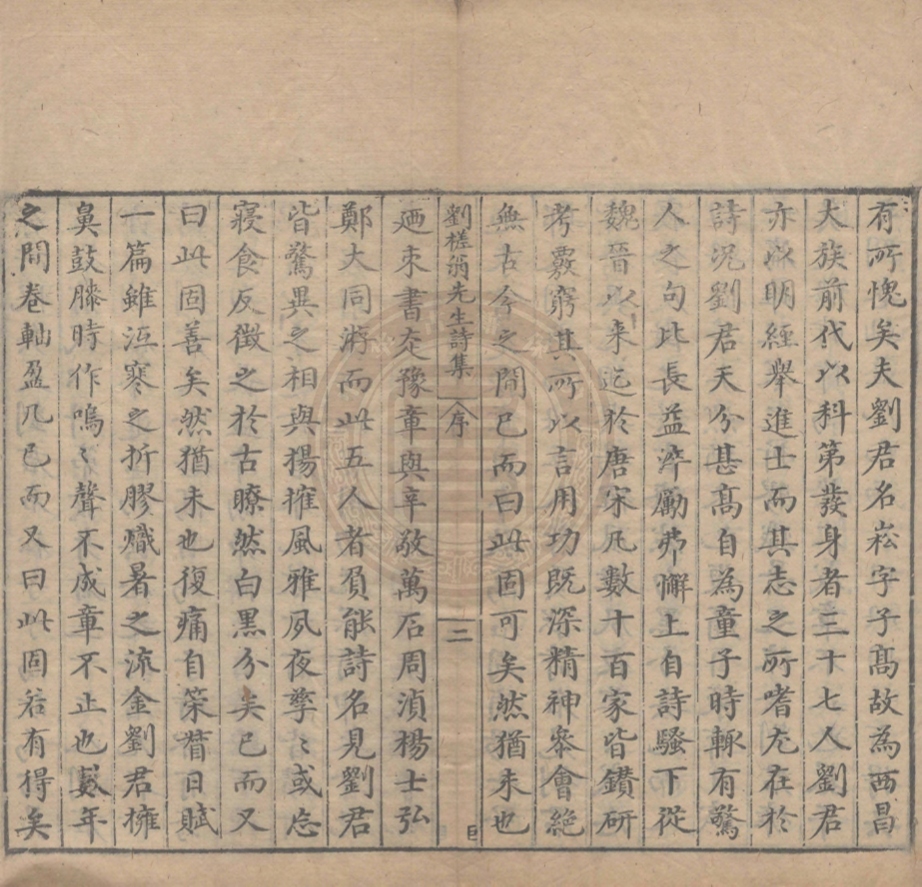 有所愧矣夫劉君名崧字子髙故為西昌
大族前代以科第發身者三十七人劉君
亦以明經舉進士而其志之所嗜尤在於
詩況劉君天分甚髙自為童子時輙有驚
人之句比長益淬勵弗懈上自詩騷下從
魏晉以来迄於唐宋凡數十百家皆鑚研
考覈窮其所以言用功既深精神參會絶
無古今之間已而曰此固可矣然猶未也
劉槎翁先生詩集 序 二
廼束書走豫章與辛敬萬石周湞楊士弘
鄭大同游而此五人者負能詩名見劉君
皆驚異之相與揚搉風雅夙夜孳〻或忘
寢食反徵之於古瞭然白黒分矣已而又
曰此固善矣然猶未也復痛自䇿督日賦
一篇雖冱寒之折膠熾暑之流金劉君擁
鼻鼓膝時作嗚〻聲不成章不止也數年
之間卷軸盈几已而又曰此固若有得矣